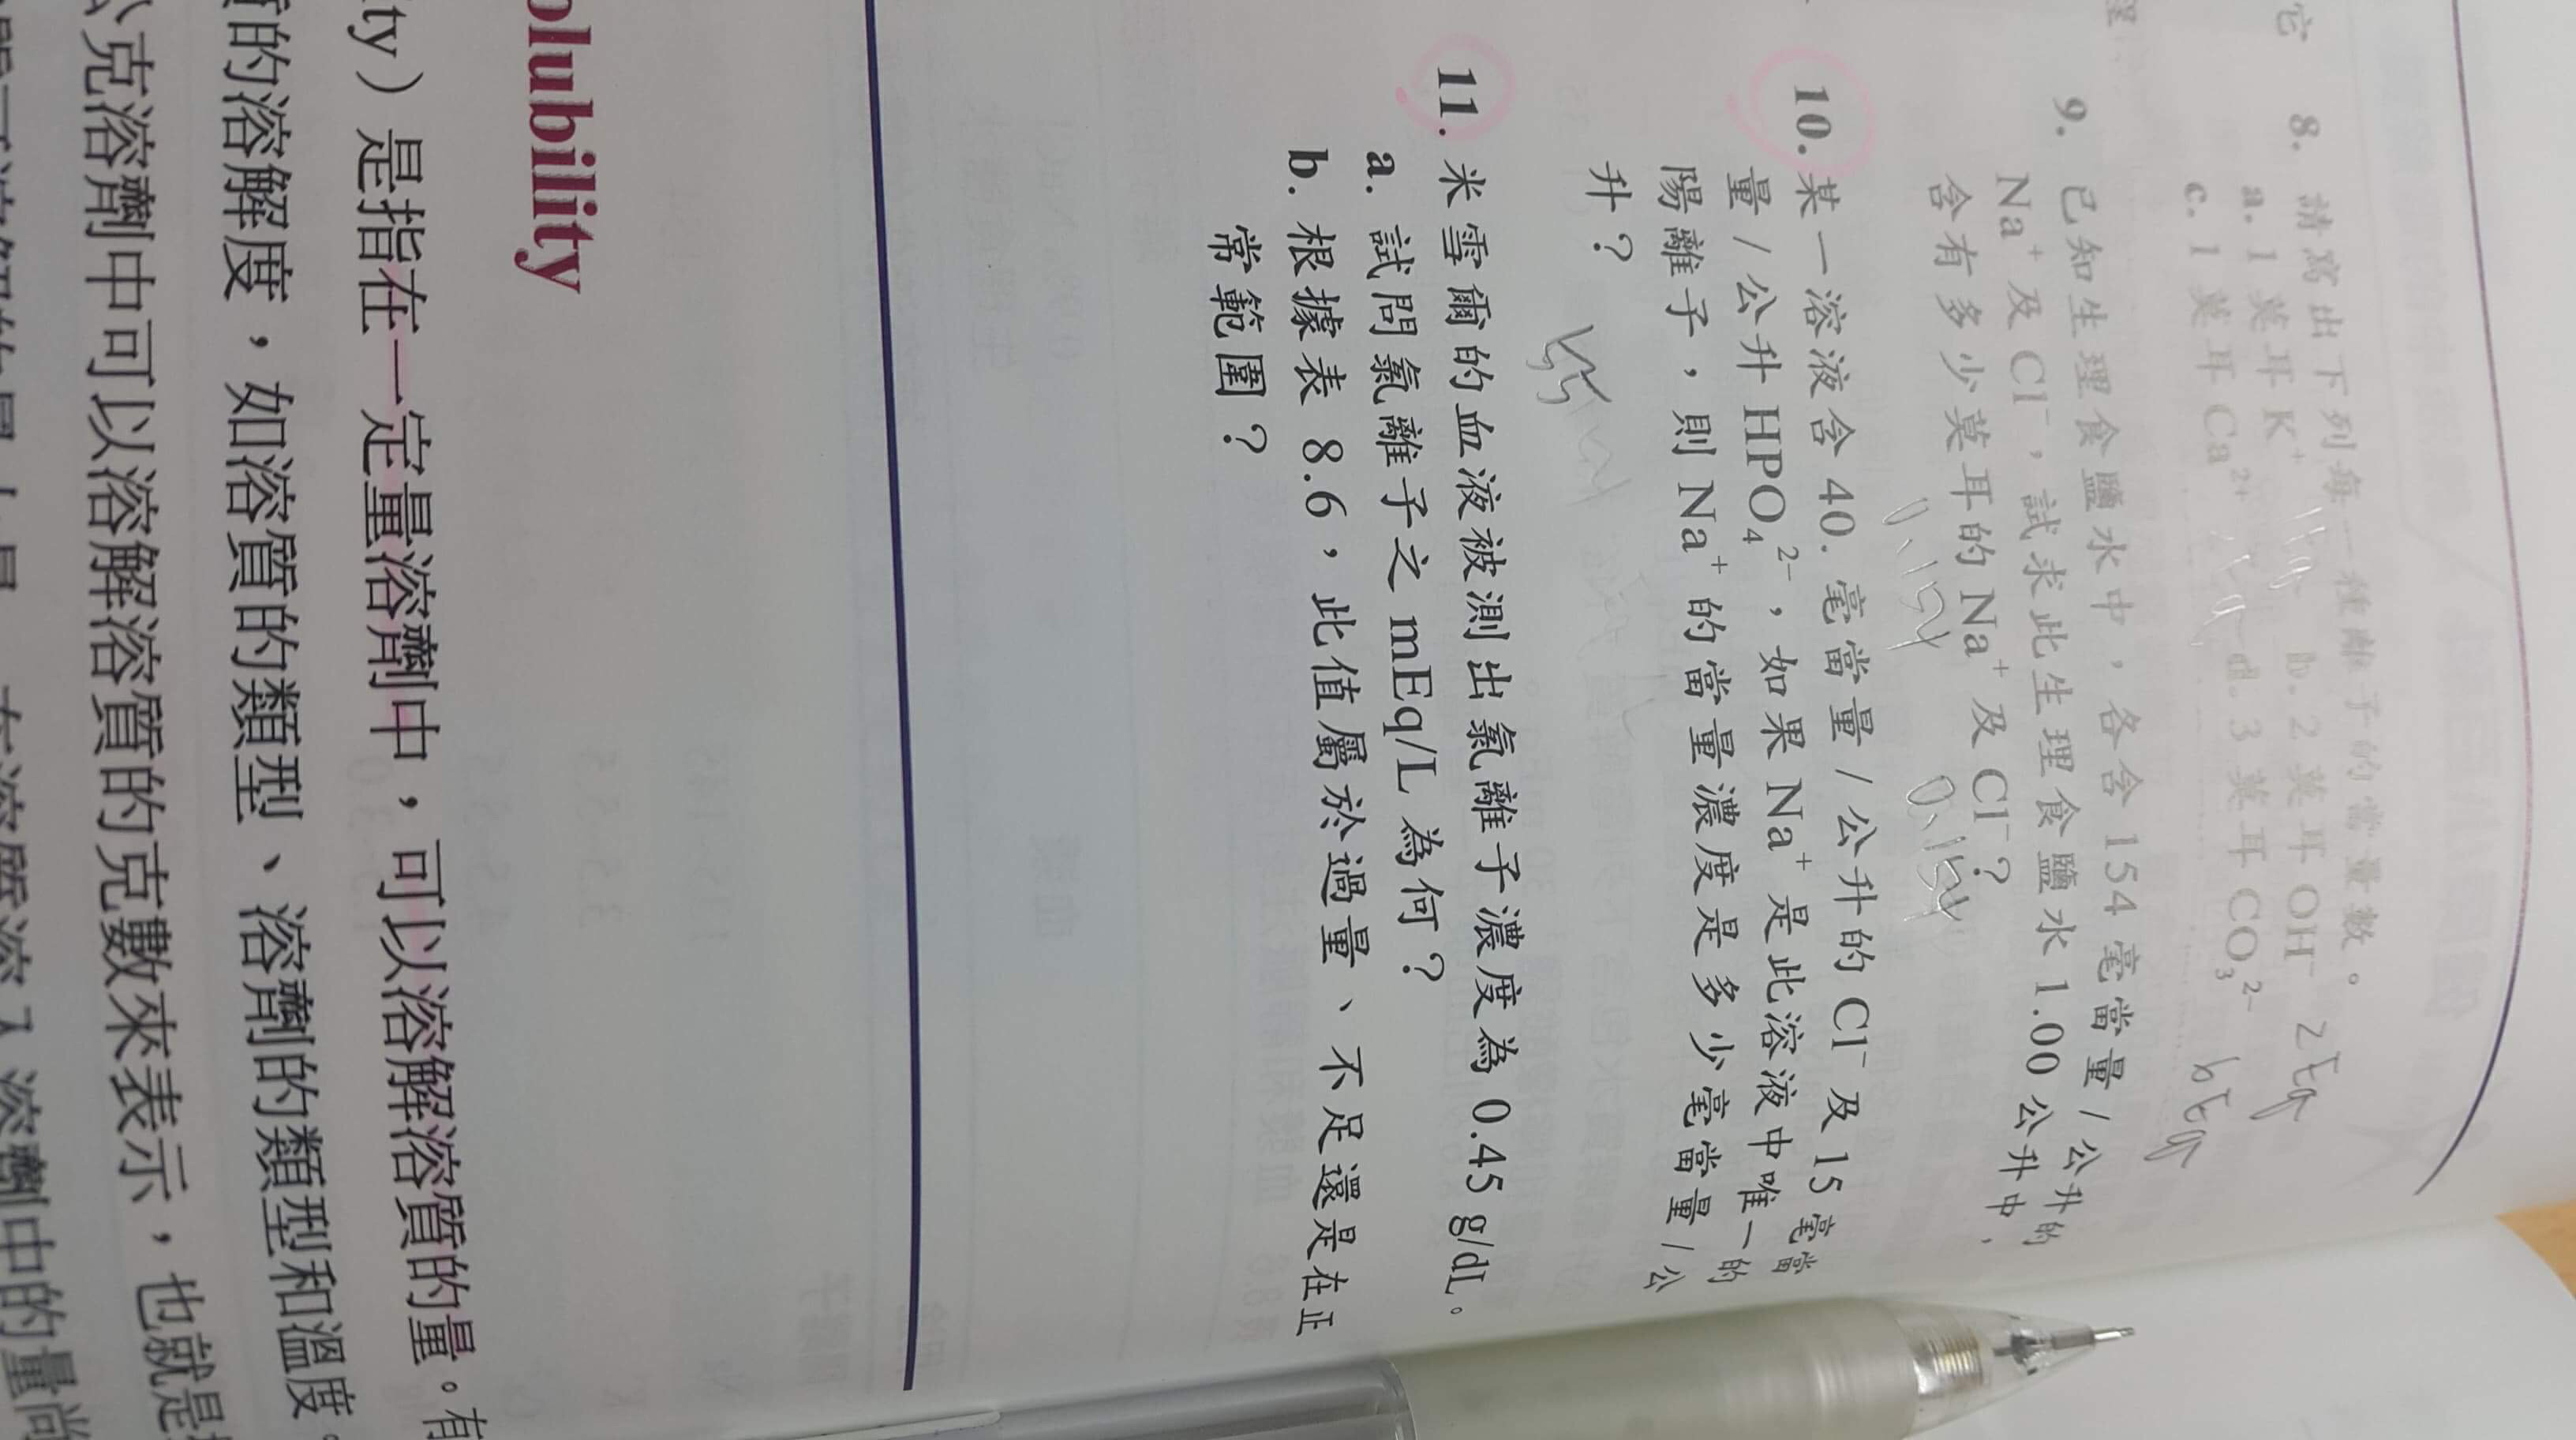 它
8. 請寫出下列每一種離子的當量數。
a. 1 莫耳 K⁺ b. 2 莫耳 OH⁻ 2Eq
c. 1 莫耳 Ca²⁺ d. 3 莫耳 CO₃²⁻ 6Eq
9. 已知生理食鹽水中，各含 154 毫當量/公升的
Na⁺ 及 Cl⁻，試求此生理食鹽水 1.00 公升中，
含有多少莫耳的 Na⁺ 及 Cl⁻？
0.154 0.154
10. 某一溶液含 40. 毫當量/公升的 Cl⁻ 及 15 毫當
量/公升 HPO₄²⁻，如果 Na⁺ 是此溶液中唯一的
陽離子，則 Na⁺ 的當量濃度是多少毫當量/公
升？
11. 米雪爾的血液被測出氯離子濃度為 0.45 g/dL。
a. 試問氯離子之 mEq/L 為何？
b. 根據表 8.6，此值屬於過量、不足還是在正
常範圍？
olubility
ty）是指在一定量溶劑中，可以溶解溶質的量。有
的溶解度，如溶質的類型、溶劑的類型和溫度。
公克溶劑中可以溶解溶質的克數來表示，也就是